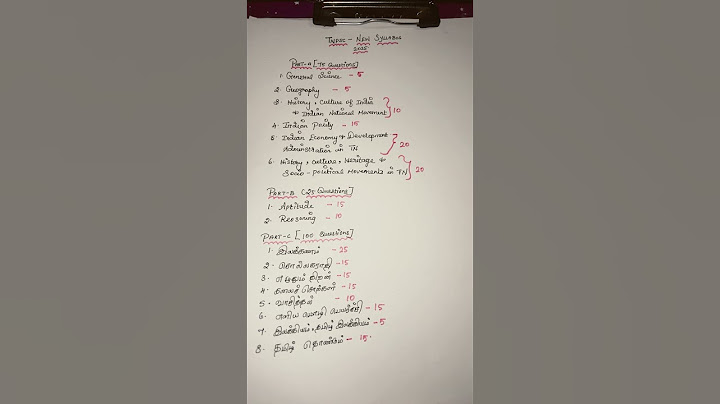 TNPSC - NEW SYLLABUS
2025
PART-A [75 Questions]
1. General Science - 5
2. Geography - 5
3. History, Culture of India
& Indian National Movement } 10
4. Indian Polity - 15
5. Indian Economy & Development
Administration in TN } 20
6. History, Culture, Heritage &
Socio-Political Movements in TN } 20
PART-B (25 Questions]
1. Aptitude - 15
2. Reasoning - 10
PART-C [100 Questions]
1. இலக்கணம் - 25
2. சொல்லகராதி - 15
3. எழுதும் திறன் - 15
4. கலைச் சொற்கள் - 15
5. வாசித்தல் - 10
6. எளிய மொழி பெயர்ப்பு - 15
7. இலக்கியம், தமிழ் இலக்கியம் - 5
8. தமிழ் தொண்டும் - 15